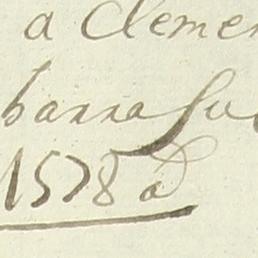 a Clemen
barra su
1578 a